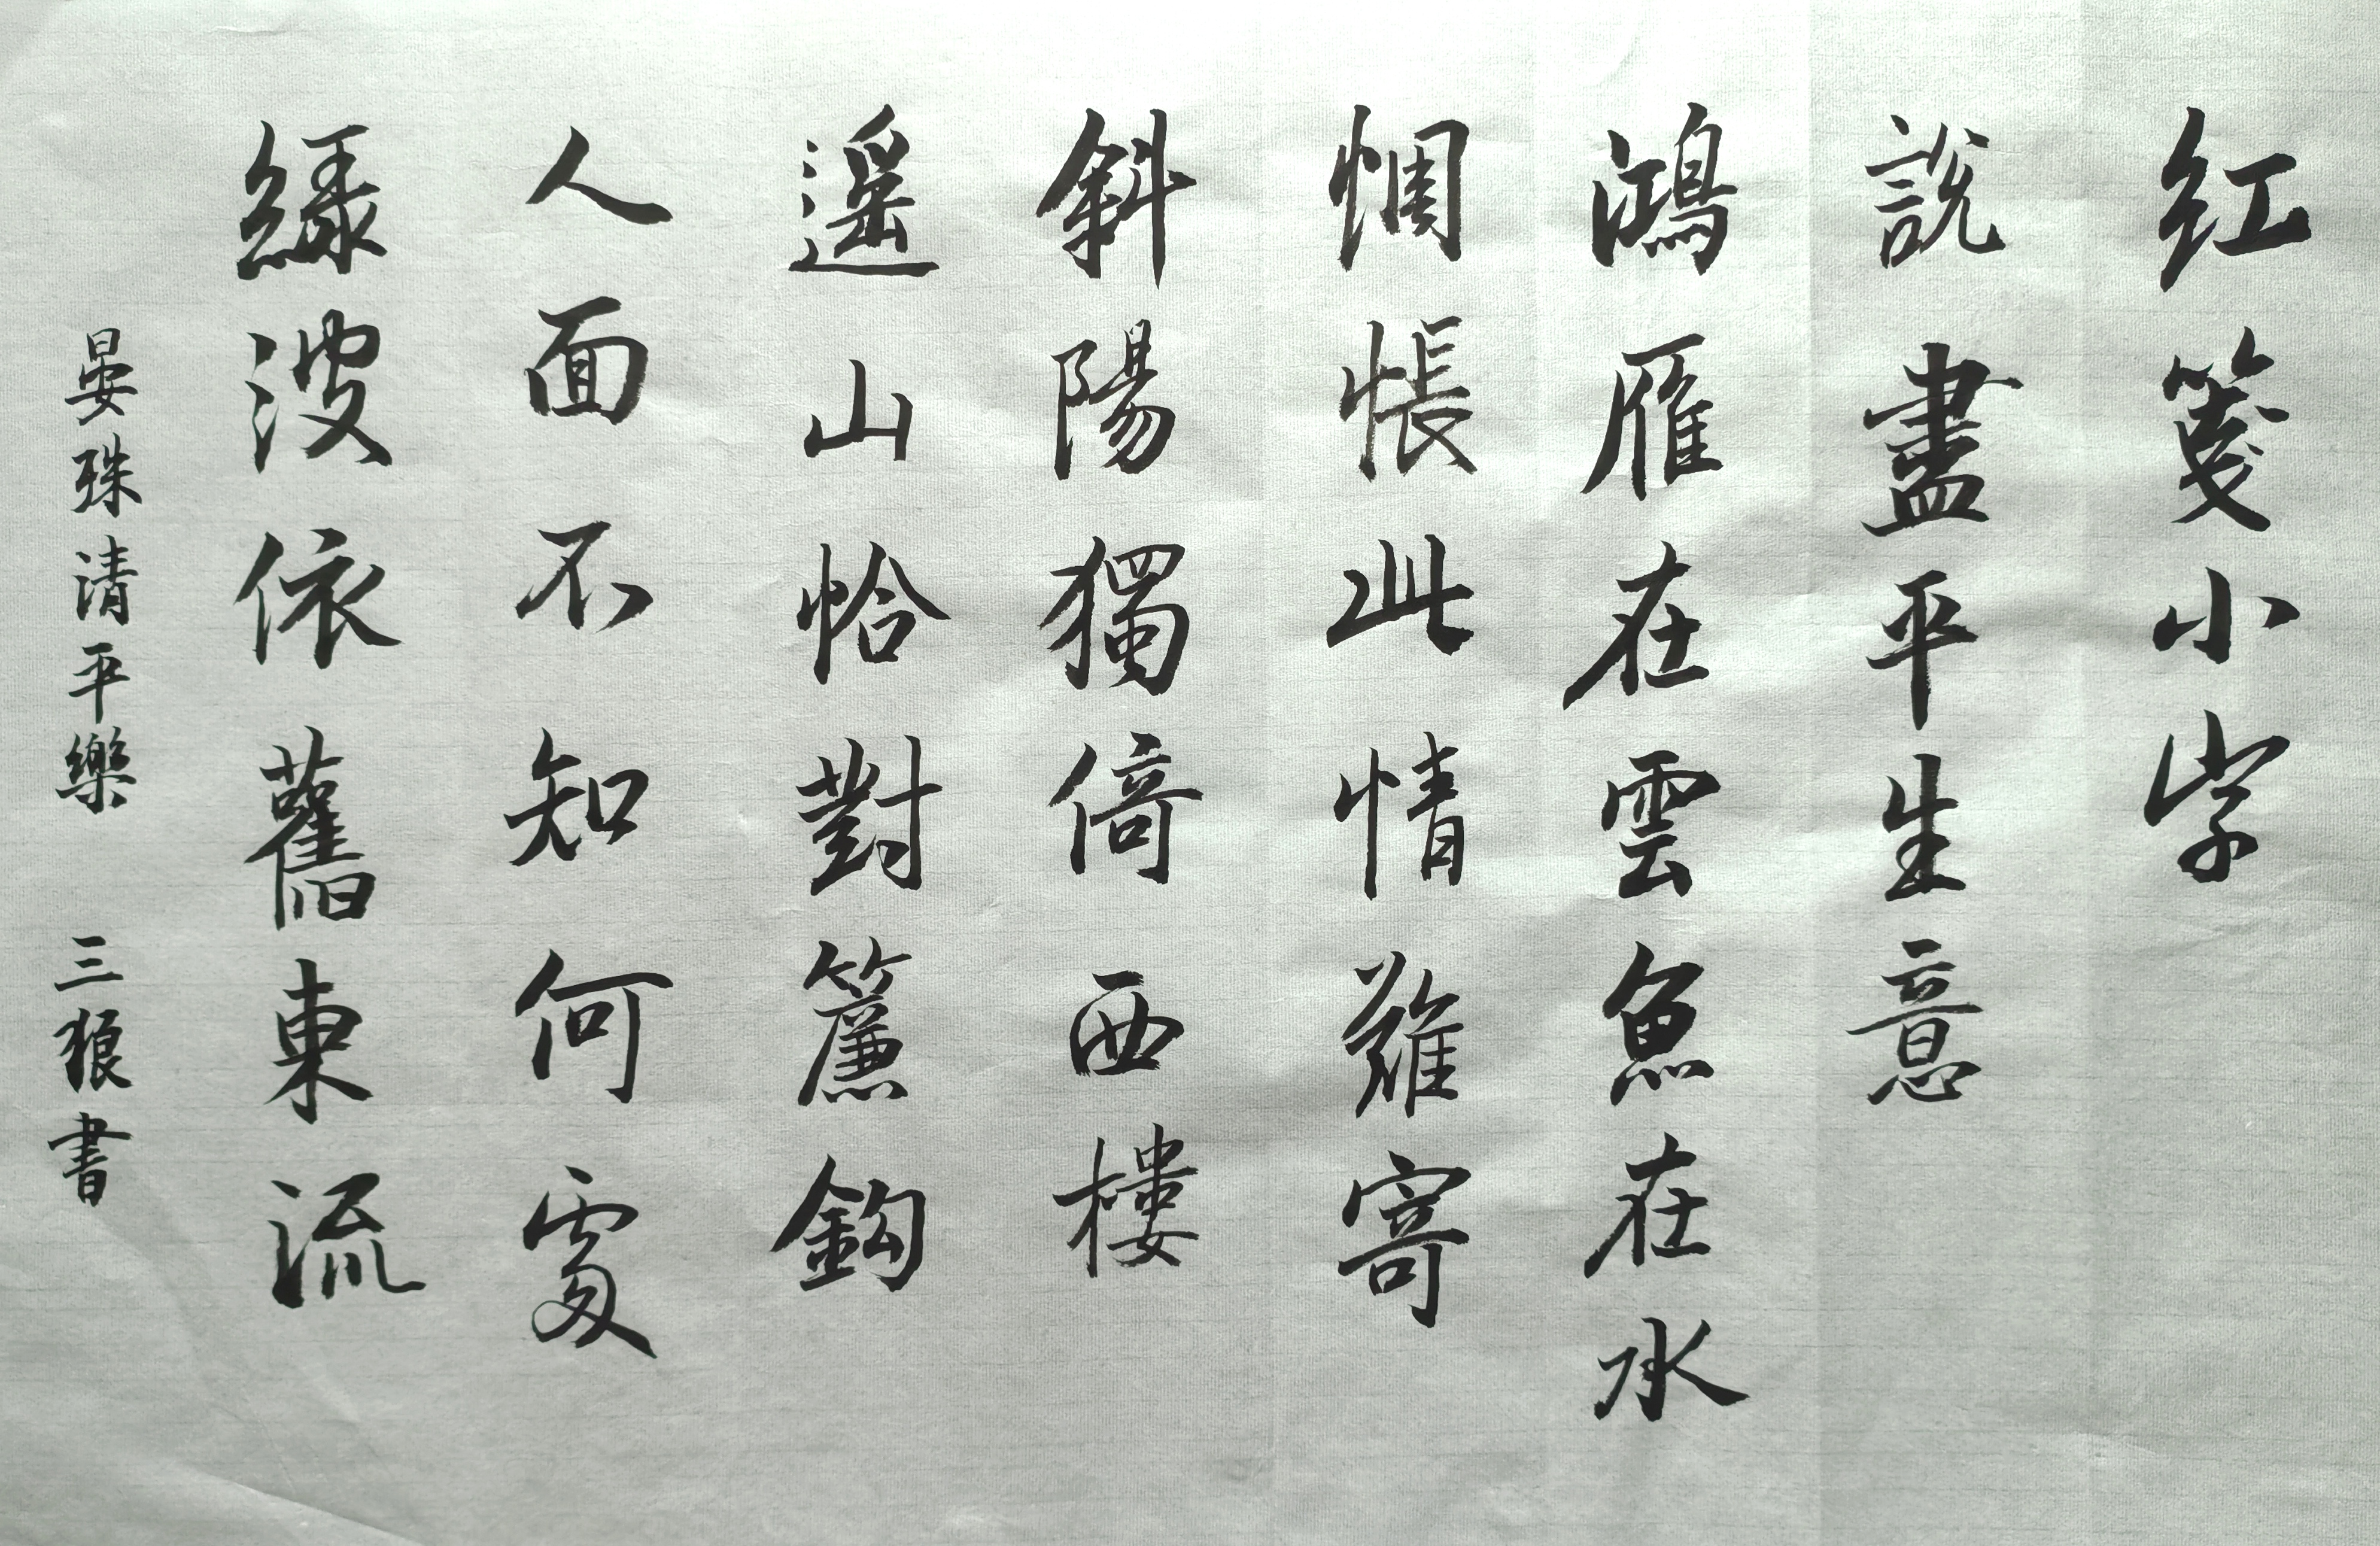 紅箋小字
說盡平生意
鴻雁在雲魚在水
惆悵此情難寄
斜陽獨倚西樓
遥山恰對簾鈎
人面不知何處
緑波依舊東流
晏殊清平樂 三狼書